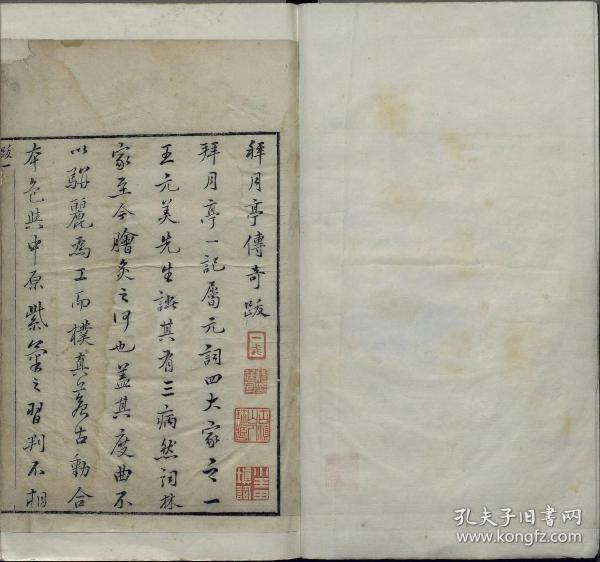 拜月亭傳奇跋
拜月亭一記屬元詞四大家之一
王元美先生誚其有三病然詞林
家至今膾炙之何也蓋其度曲不
以駢麗為工而樸真蒼古動合
本色與中原紫氣之習判不相
跋一
孔夫子旧书网
www.kongfz.com